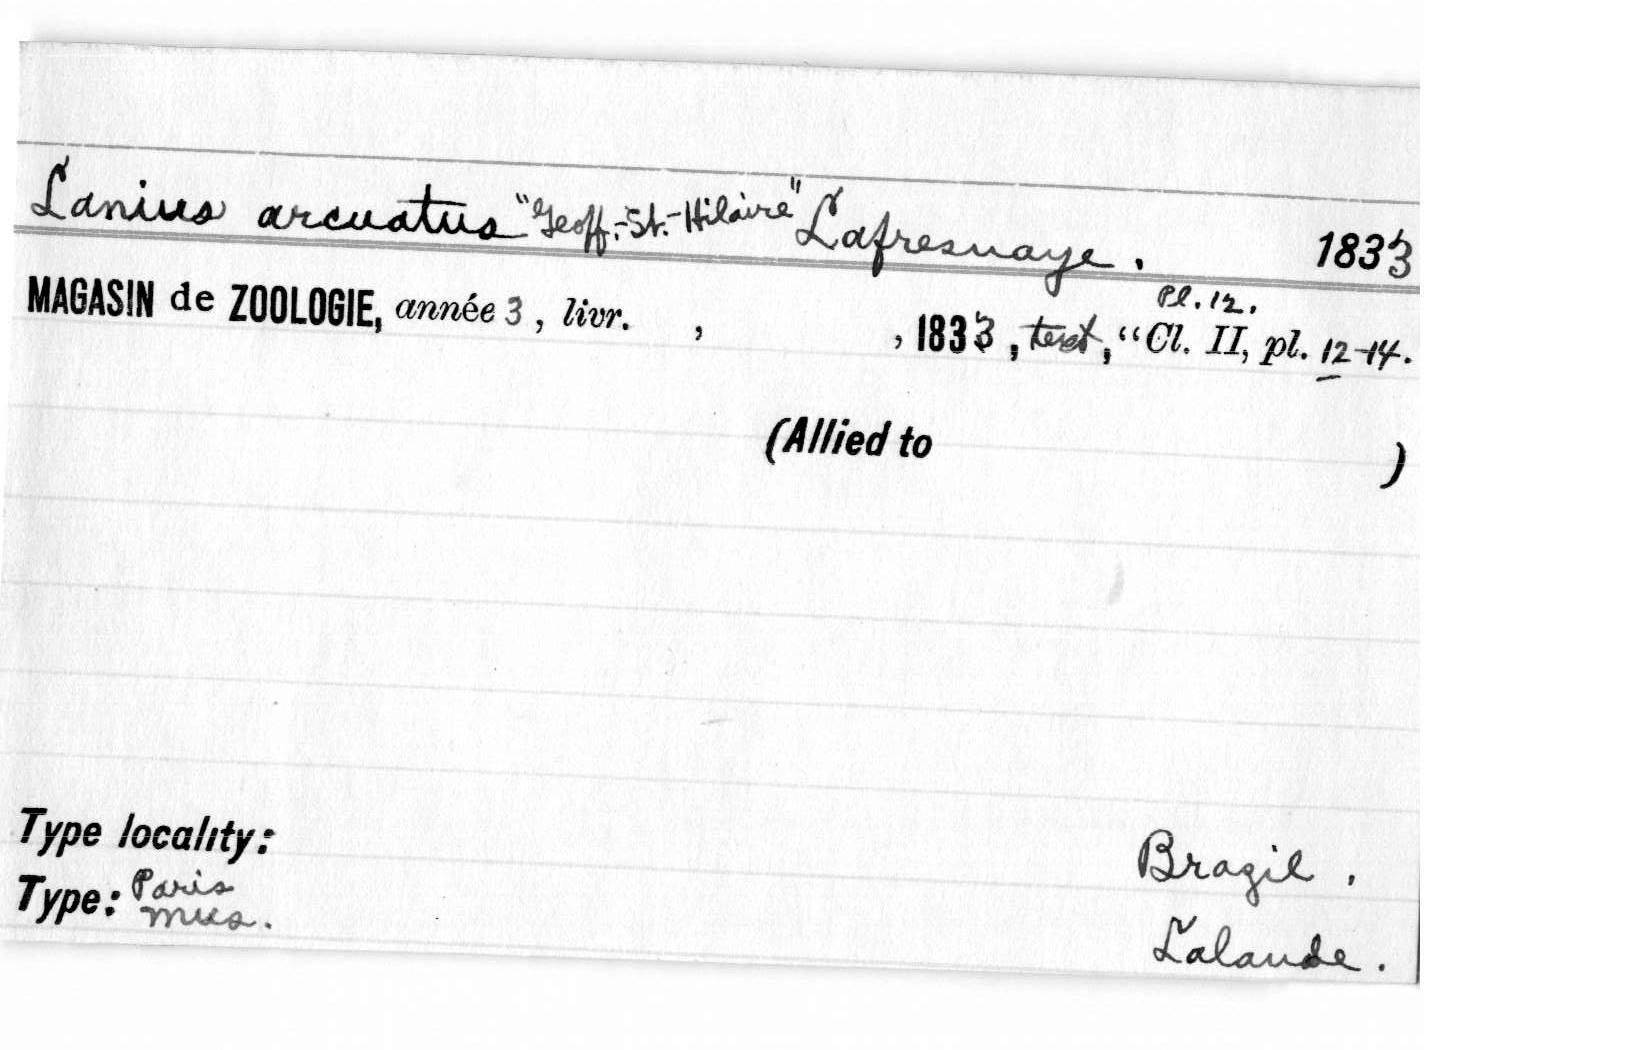 Lanius arcuatus "Geoff.-St.-Hilaire" Lafresnaye. 1833
Pl. 12.
MAGASIN de ZOOLOGIE, année 3, livr. , , 1833, text, "Cl. II, pl. 12-14.
(Allied to )
Type locality: Brazil.
Type: Paris
mus. Lalande.